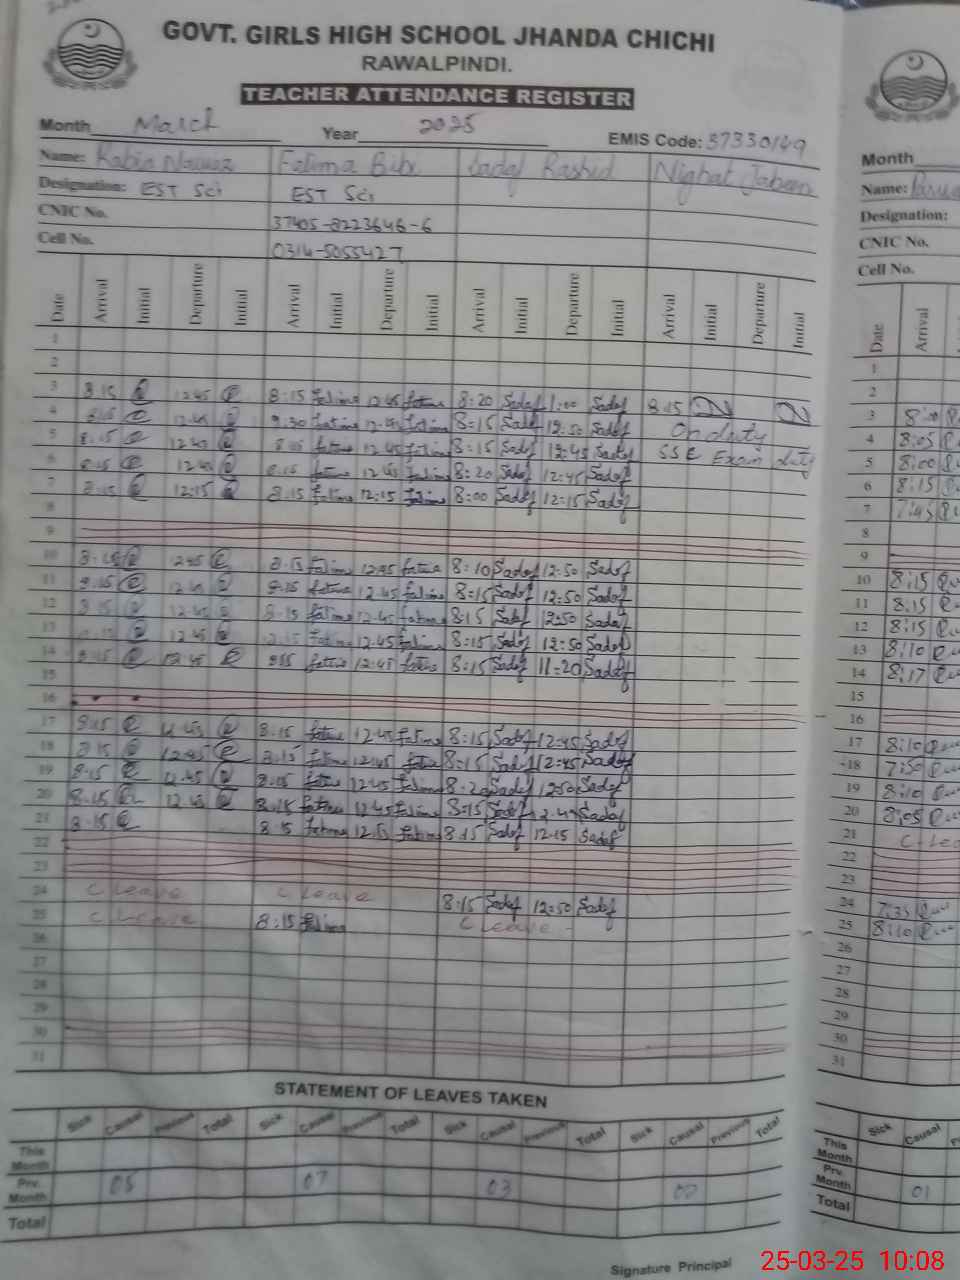 GOVT. GIRLS HIGH SCHOOL JHANDA CHICHI
RAWALPINDI.
TEACHER ATTENDANCE REGISTER
Month March Year 2025 EMIS Code: 37330149
Name: Rabia Nawaz Fatima Bibi Sadaf Rashid Nighat Jabeen
Designation: EST Sci EST Sci
CNIC No. 37405-8223646-6
Cell No. 0314-5055427
Date Arrival Initial Departure Initial Arrival Initial Departure Initial Arrival Initial Departure Initial Arrival Initial Departure Initial
1
2
3 8:15 12:45 8:15 Fatima 12:45 Fatima 8:20 Sadaf 1:00 Sadaf 8:15
4 8:15 12:45 Fatima 12:45 Fatima 8:15 Sadaf 12:50 Sadaf On duty
5 8:15 12:45 8:15 Fatima 12:45 Fatima 8:15 Sadaf 12:45 Sadaf SSC Exam duty
6 8:15 12:45 8:15 Fatima 12:45 Fatima 8:20 Sadaf 12:45 Sadaf
7 8:15 12:15 8:15 Fatima 12:15 Fatima 8:00 Sadaf 12:15 Sadaf
8
9
10 8:15 12:45 8:15 Fatima 12:45 Fatima 8:10 Sadaf 12:50 Sadaf
11 8:15 12:45 8:15 Fatima 12:45 Fatima 8:15 Sadaf 12:50 Sadaf
12 8:15 12:45 8:15 Fatima 12:45 Fatima 8:15 Sadaf 12:50 Sadaf
13 12:45 8:15 Fatima 12:45 Fatima 8:15 Sadaf 12:50 Sadaf
14 8:15 12:45 Fatima 12:45 Fatima 8:15 Sadaf 11:20 Sadaf
15
16
17 8:15 12:45 8:15 Fatima 12:45 Fatima 8:15 Sadaf 12:45 Sadaf
18 8:15 12:45 8:15 Fatima 12:45 Fatima 8:15 Sadaf 12:45 Sadaf
19 8:15 12:45 8:15 Fatima 12:45 Fatima 8:20 Sadaf 12:50 Sadaf
20 8:15 12:45 8:15 Fatima 12:45 Fatima 8:15 Sadaf 12:45 Sadaf
21 8:15 8:15 Fatima Fatima 8:15 Sadaf 12:15 Sadaf
22
23
24 C Leave C Leave 8:15 Sadaf 12:50 Sadaf
25 C Leave 8:15 Fatima C Leave
26
27
28
29
30
31
STATEMENT OF LEAVES TAKEN
Sick Causal Previous Total Sick Causal Previous Total Sick Causal Previous Total Sick Causal Previous Total
This Month
Prv. Month 05 07 03 00
Total
Signature Principal
Month
Name:
Designation:
CNIC No.
Cell No.
Date Arrival
1
2
3 8:00
4 8:05
5 8:00
6 8:15
7 7:45
8
9
10 8:15
11 8:15
12 8:15
13 8:10
14 8:17
15
16
17 8:10
18 7:50
19 8:10
20 8:05
21 C Lea
22
23
24 7:35
25 8:10
26
27
28
29
30
31
Sick Causal
This Month
Prv. Month 01
Total
25-03-25 10:08